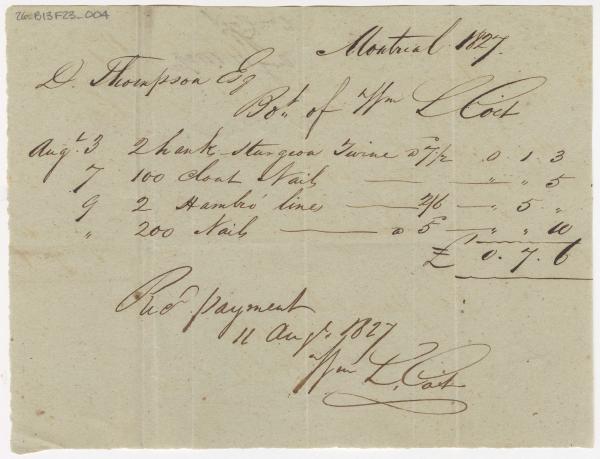 26-B13F23_004
Montreal 1827.
D. Thompson Esq
Bot. of Wm L Coit
Augt. 3 2 hank Sturgeon Twine @ 7½ 0. 1. 3
7 100 Clout Nails — " 5
9 2 Hambro' lines 2/6 — " 5 "
" 200 Nails @ 5 — " " 10
£ 0. 7. 6
Recd. payment
11 Augt. 1827
Wm L. Coit